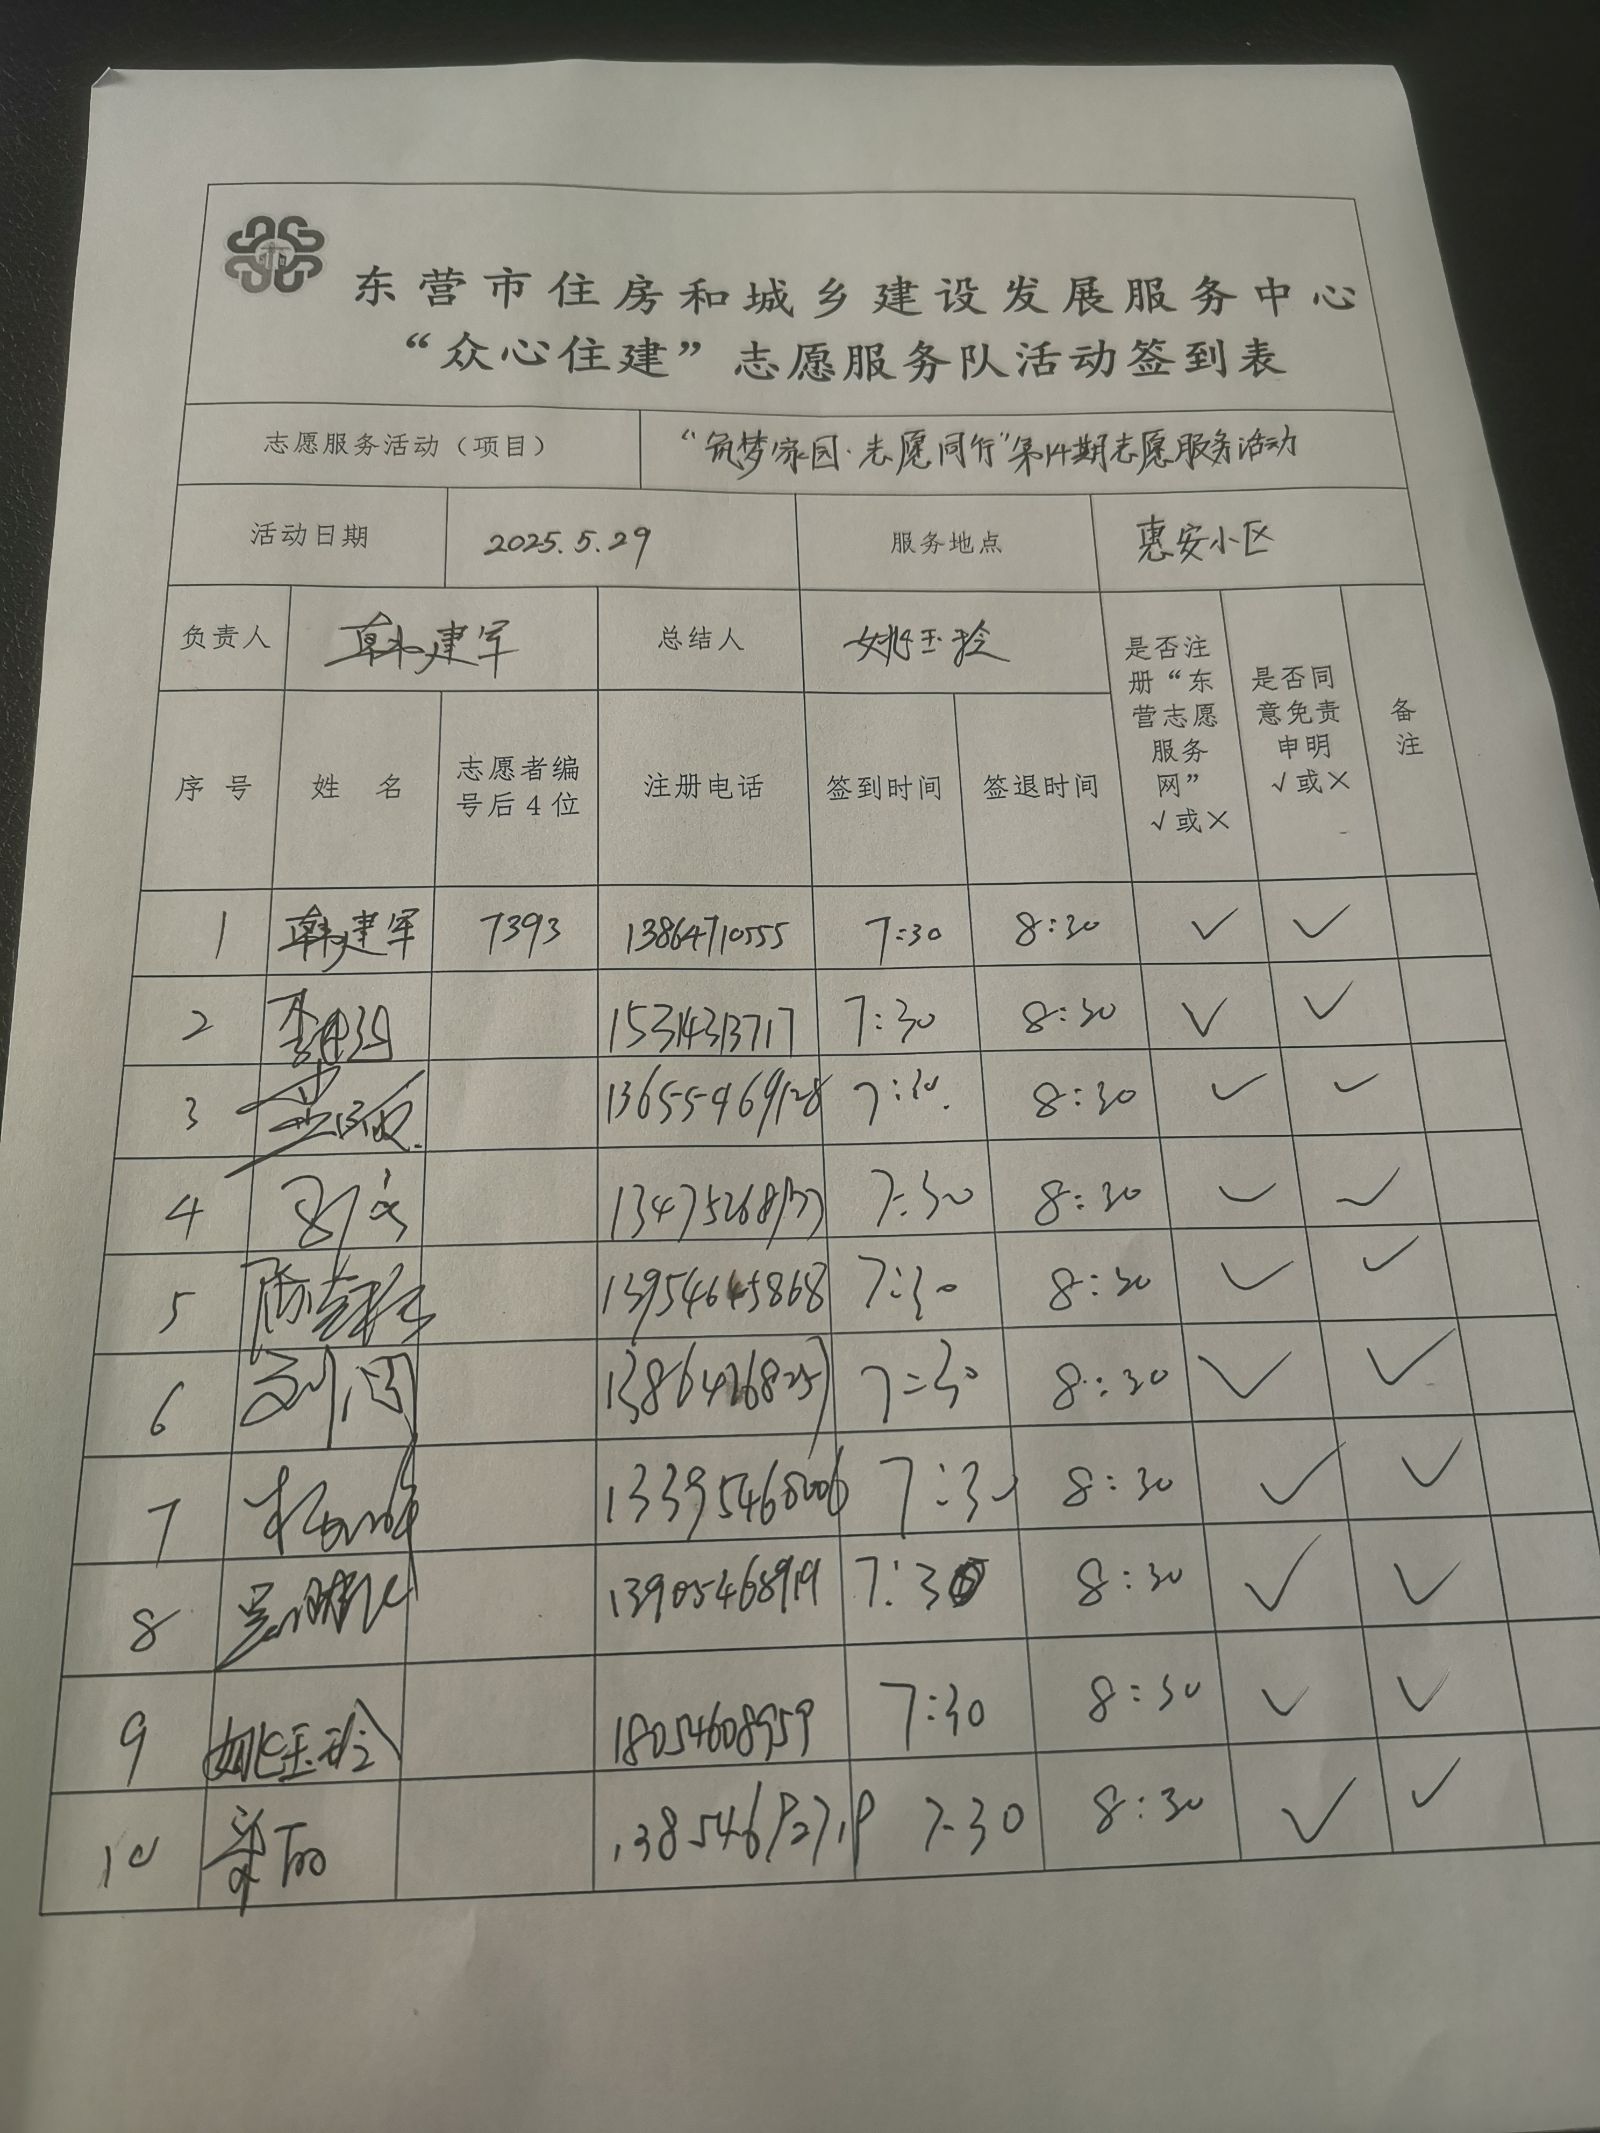 东营市住房和城乡建设发展服务中心
“众心住建”志愿服务队活动签到表
志愿服务活动（项目） “筑梦家园·志愿同行”第14期志愿服务活动
活动日期 2025.5.29 服务地点 惠安小区
负责人 韩建军 总结人 姚玉玲 是否注册“东营志愿服务网”√或× 是否同意免责申明√或× 备注
序号 姓名 志愿者编号后4位 注册电话 签到时间 签退时间
1 韩建军 7393 13864710555 7:30 8:30 ✓ ✓
2 15314313717 7:30 8:30 ✓ ✓
3 13655469128 7:30 8:30 ✓ ✓
4 7:30 8:30 ✓ ✓
5 13954645868 7:30 8:30 ✓ ✓
6 7:30 8:30 ✓ ✓
7 13395468006 7:30 8:30 ✓ ✓
8 13905468919 7:30 8:30 ✓ ✓
9 姚玉玲 18054608959 7:30 8:30 ✓ ✓
10 7:30 8:30 ✓ ✓